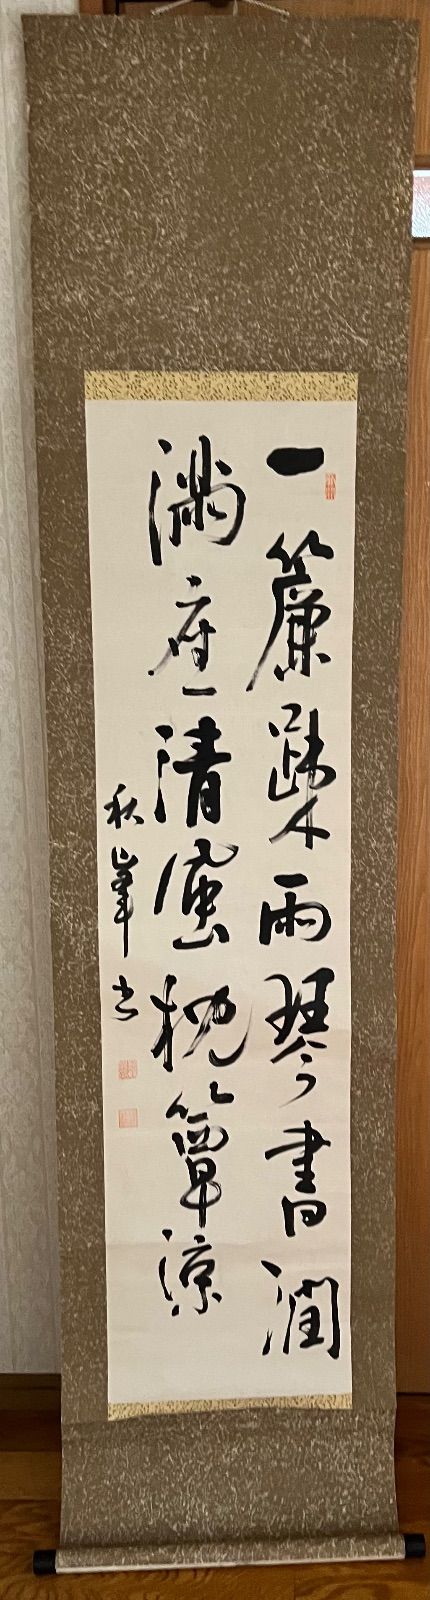 一簾疎雨琴書潤
満座清風枕簟涼
秋峯書